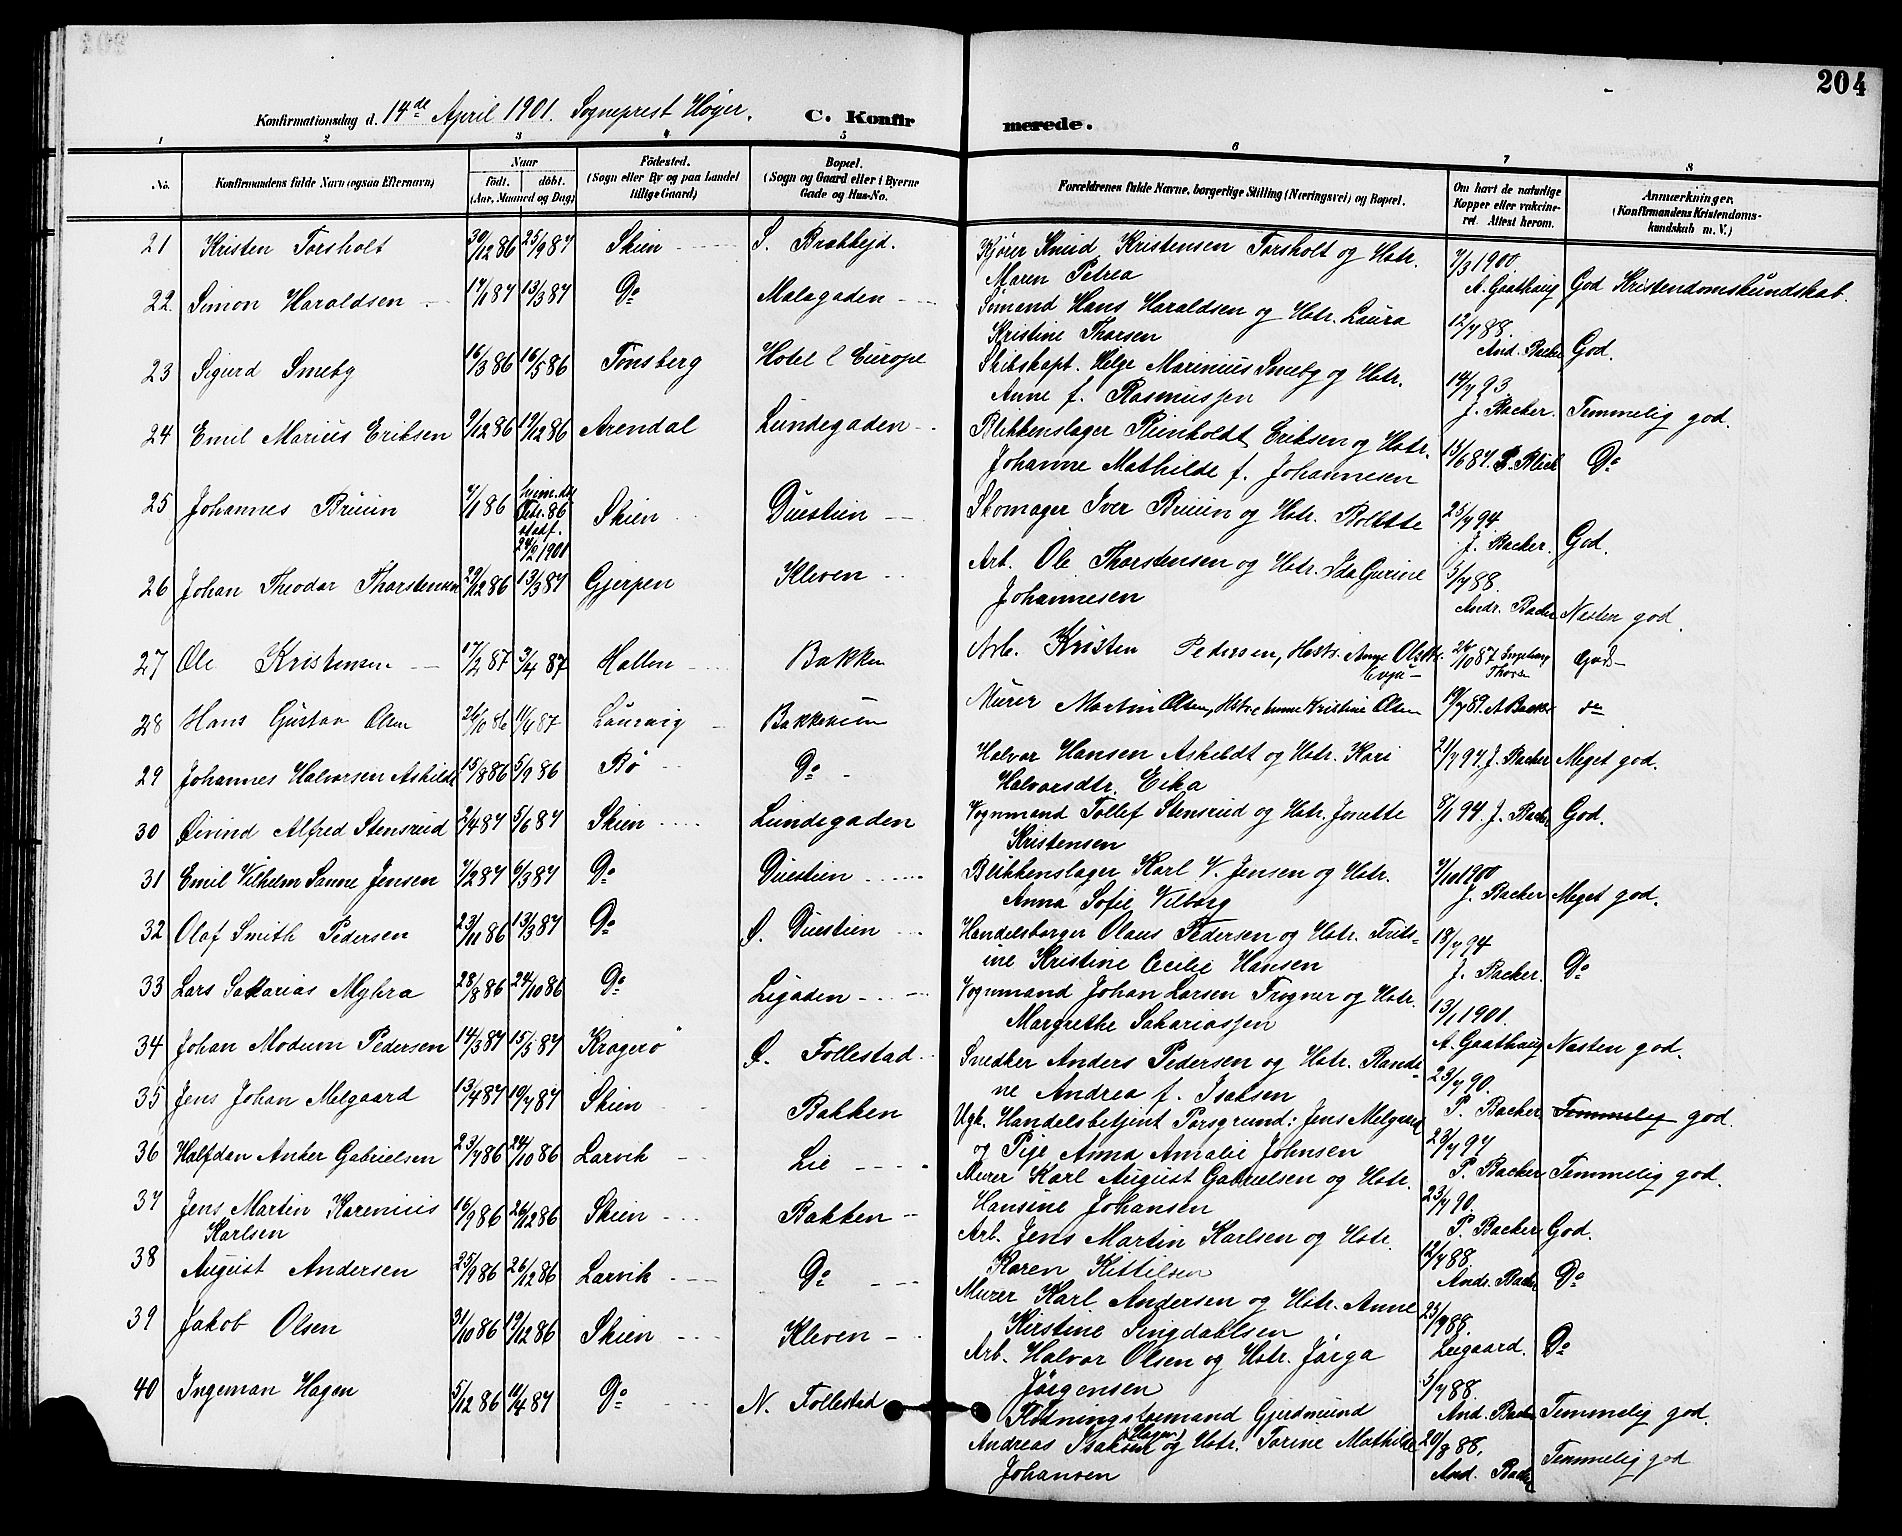 204
Konfirmationsdag d. 14de April 1901. Sogneprest Høyer. C. Konfirmerede.
1 2 3 4 5 6 7 8
No. Konfirmandens fulde Navn (ogsaa Efternavn) Naar født. døbt. (Aar, Maaned og Dag) Fødested. (Sogn eller By og paa Landet tillige Gaard) Bopæl. (Sogn og Gaard eller i Byerne Gade og Hus-No. Forældrenes fulde Navne, borgerlige Stilling (Næringsvei) og Bopæl. Om havt de naturlige Kopper eller vakcineret. Attest herom. Anmærkninger. (Konfirmandens Kristendomskundskab m. V.)
21 Kristen Torsholt 30/12 86 25/9 87 Skien S. Brekkejd. Kjører Knud Kristensen Torsholt og Hstr. Maren Petrea 7/3 1900. A. Gaathaug God Kristendomskundskab.
22. Simon Haraldsen 17/1 87 13/3 87 Do Malagaden Sømand Hans Haraldsen og Hstr. Laura Kristine Thorsen 12/7 88. And. Backer God.
23 Sigurd Smeby 16/3 86 16/5 86 Tønsberg Hotel l Europe Skibskapt. Helge Marinius Smeby og Hstr. Anne f. Rasmussen 14/7 93 J. Backer. Temmelig god.
24 Emil Marius Eriksen 9/12 86 19/12 86 Arendal Lundegaden Blikkenslager Reinholdt Eriksen og Hstr. Johanne Mathilde f. Johannesen 15/6 87. Do
25 Johannes Bruun 7/1 86 hjem.dbt Febr. 86 stadf. 24/2 1901 Skien Duestien Skomager Iver Bruun og Hstr. Bolette 25/7 94 J. Backer. God.
26 Johan Theodor Thorstensen 29/12 86 13/3 87 Gjerpen Kleven Arb. Ole Thorstensen og Hstr. Ida Gurine Johannesen 5/7 88. Andr. Backer Næsten god.
27 Ole Kristensen 17/2 87 3/4 87 Hollen Bakken Arb. Kristen Pedersen, Hustr. Anne Olsdtr. Evju 26/10 87 Ingeborg Thorsen God
28 Hans Gustav Olsen 26/10 86 11/4 87 Laurvig Bakkehuen Murer Martin Olsen, Hstr. Anne Kristine Olsen 19/7 89. A Backer do
29 Johannes Halvorsen Askildt 15/8 86 5/9 86 Bø Do Halvor Hansen Askildt og Hstr. Kari Halvorsdtr. Eika 21/7 97. J. Backer Meget god.
30 Øivind Alfred Stensrud 2/4 87 5/6 87 Skien Lundegaden Vognmand Tollef Stensrud og Hstr. Jonette Kristensen 8/1 94. J. Backer God.
31 Emil Vilhelm Sanne Jensen 7/2 87 6/3 87 Do Duestien Blikkenslager Karl V. Jensen og Hstr. Anna Sofie Vilborg 7/10 1900 J. Backer Meget god.
32 Olaf Smith Pedersen 23/11 86 13/3 87 Do S. Duestien Handelsborger Olaus Pedersen og Hstr. Fritsine Kristine Cecilie Hansen 18/7 94 J. Backer. Do
33 Lars Sakarias Myhra 28/8 86 24/10 86 Do Ligaden Vognmand Johan Larsen Trogner og Hstr. Margrethe Sakariassen 13/1 1901. A. Gaathaug Næsten god.
34 Johan Modum Pedersen 14/3 87 15/5 87 Kragerø S. Follestad Snedker Anders Pedersen og Hstr. Randine Andrea f. Isaksen 23/7 90. P. Backer <del>Temmelig</del> god.
35 Jens Johan Melgaard 13/4 87 19/7 87 Skien Bakken Ugk. Handelsbetjent Porsgrund: Jens Melgaard og Pige Anna Amalie Johnsen 23/7 97 P. Backer Temmelig god.
36 Halfdan Anker Gabrielsen 23/7 86 24/10 86 Larvik Lie Murer Karl August Gabrielsen og Hstr. Hansine Johansen 23/7 90. P. Backer God.
37 Jens Martin Karenius Karlsen 16/9 86 26/12 86 Skien Bakken Arb. Jens Martin Karlsen og Hstr. Karen Kittilsen 12/7 88. Andr. Backer Do
38 August Andersen 25/9 86 26/12 86 Larvik Do Murer Karl Andersen og Hstr. Anne Kirstine Singdahlsen 25/9 88. Leegaard. Do
39 Jakob Olsen 31/10 86 19/12 86 Skien Kleven Arb. Halvor Olsen og Hstr. Jørga Jørgensen 5/7 88. And. Backer Temmelig god.
40 Ingeman Hagen 5/12 86 11/4 87 Do N. Follestad Andreas Isaksen (Hagen) og Hstr. Torine Mathilde Johansen 20/8 88. And. Backer Temmelig god